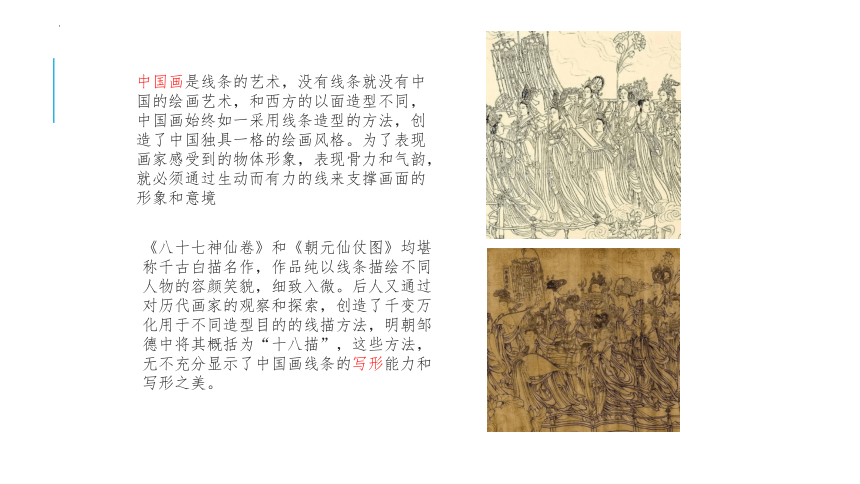 中国画是线条的艺术，没有线条就没有中
国的绘画艺术，和西方的以面造型不同，
中国画始终如一采用线条造型的方法，创
造了中国独具一格的绘画风格。为了表现
画家感受到的物体形象，表现骨力和气韵，
就必须通过生动而有力的线来支撑画面的
形象和意境
《八十七神仙卷》和《朝元仙仗图》均堪
称千古白描名作，作品纯以线条描绘不同
人物的容颜笑貌，细致入微。后人又通过
对历代画家的观察和探索，创造了千变万
化用于不同造型目的的线描方法，明朝邹
德中将其概括为“十八描”，这些方法，
无不充分显示了中国画线条的写形能力和
写形之美。